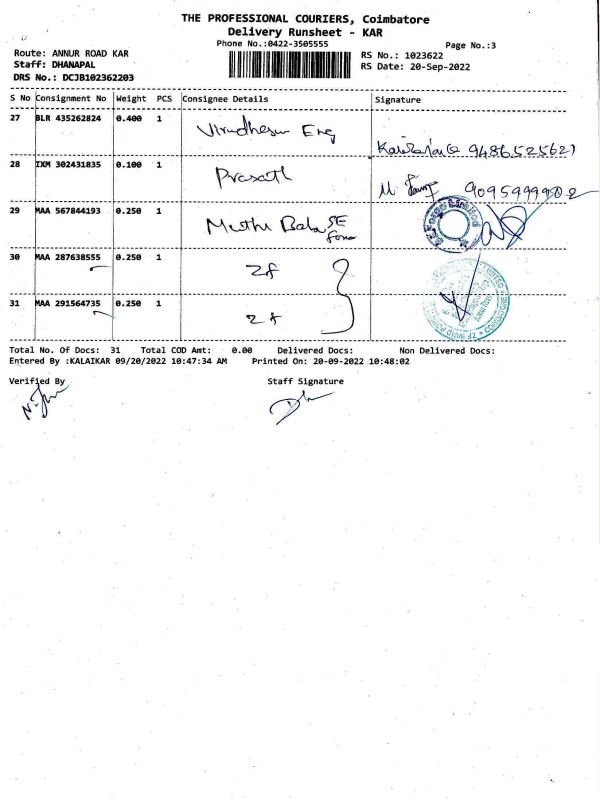 THE PROFESSIONAL COURIERS, Coimbatore
Delivery Runsheet - KAR
Phone No.:0422-3505555
Page No.:3
Route: ANNUR ROAD KAR
RS No.: 1023622
Staff: DHANAPAL
RS Date: 20-Sep-2022
DRS No.: DCJB102362203
S No Consignment No Weight PCS Consignee Details Signature
27 BLR 435262824 0.400 1 Eng
9486525621
28 IXM 302431835 0.100 1 Prasath
M 9095999902
29 MAA 567844193 0.250 1 Muthu Bala SE
Forge
30 MAA 287638555 0.250 1 Zf
31 MAA 291564735 0.250 1 Zf
Total No. Of Docs: 31 Total COD Amt: 0.00 Delivered Docs: Non Delivered Docs:
Entered By :KALAIKAR 09/20/2022 10:47:34 AM Printed On: 20-09-2022 10:48:02
Verified By Staff Signature